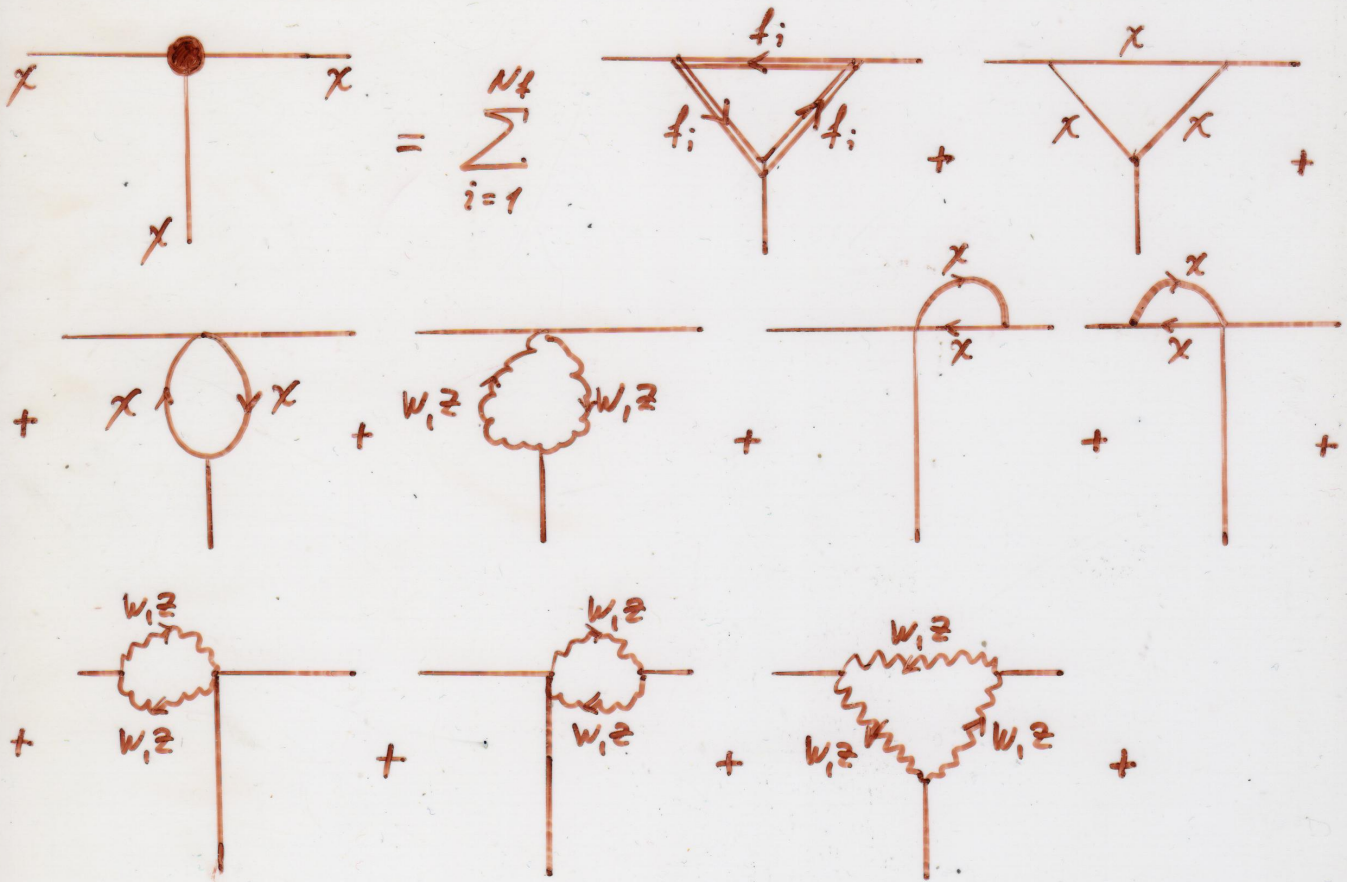 χ χ χ = N_f ∑ i=1 f_i f_i f_i + χ χ χ +
+ χ χ + W,Z W,Z + χ χ + χ χ +
+ W,Z W,Z + W,Z W,Z + W,Z W,Z W,Z +